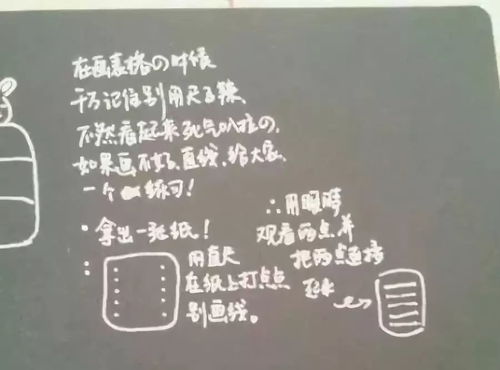 在画表格の时候
千万记住别用尺子辣、
不然看起来死气叭拉の、
如果画不好直线、给大家、
一个练习!
· 拿出一张纸!
:
用直尺
在纸上打点点
别画线。
∴用眼睛
观看两点并
把两点连接
起来